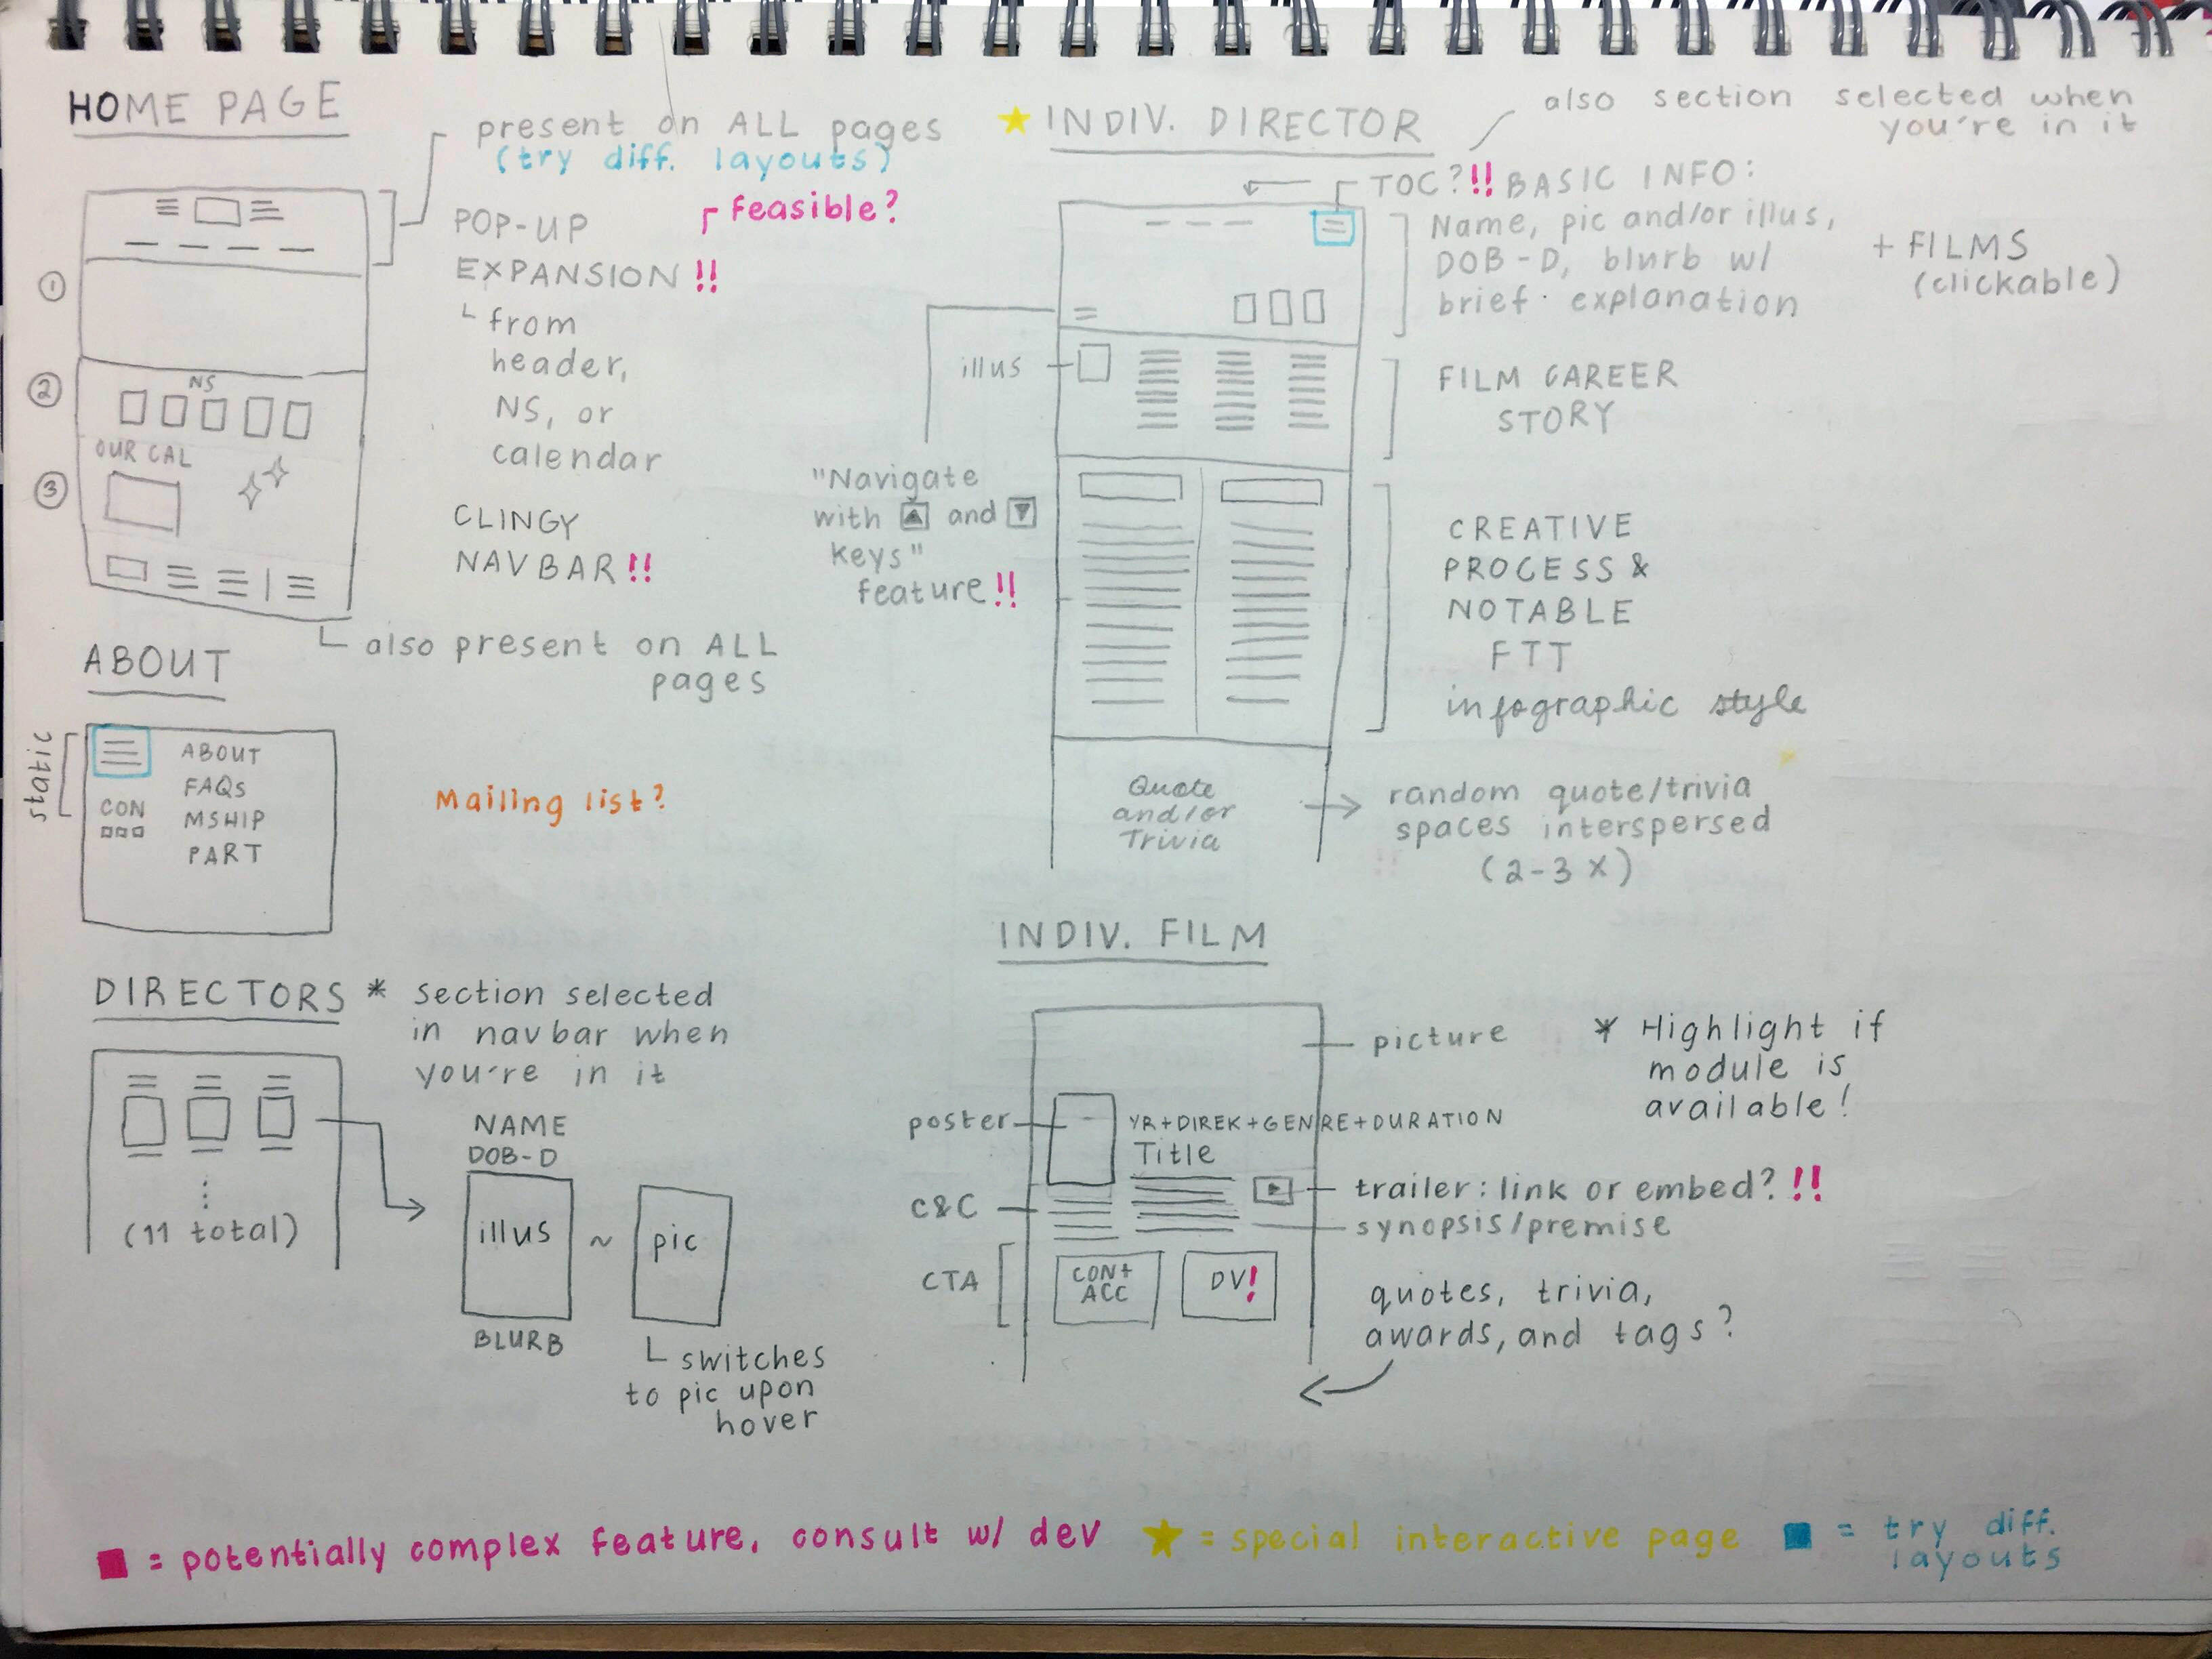 HOME PAGE
present on ALL pages
(try diff. layouts)
POP-UP
EXPANSION !!
feasible?
from
header,
NS, or
calendar
CLINGY
NAVBAR!!
1
2
NS
OUR CAL
3
also present on ALL
pages
ABOUT
static
ABOUT
FAQs
CON
MSHIP
PART
Mailing list?
DIRECTORS * section selected
in navbar when
you're in it
(11 total)
NAME
DOB-D
illus ~ pic
BLURB
switches
to pic upon
hover
★ INDIV. DIRECTOR
also section selected when
you're in it
TOC?!! BASIC INFO:
Name, pic and/or illus,
DOB-D, blurb w/
brief explanation
+ FILMS
(clickable)
illus
FILM CAREER
STORY
"Navigate
with ▲ and ▼
keys"
feature!!
CREATIVE
PROCESS &
NOTABLE
FTT
infographic style
Quote
and/or
Trivia
random quote/trivia
spaces interspersed
(2-3 X)
INDIV. FILM
picture
* Highlight if
module is
available!
poster
YR+DIREK+GENRE+DURATION
Title
C&C
trailer: link or embed?!!
synopsis/premise
CTA
CON+
ACC
DV!
quotes, trivia,
awards, and tags?
■ = potentially complex feature, consult w/ dev ★ = special interactive page ■ = try diff.
layouts